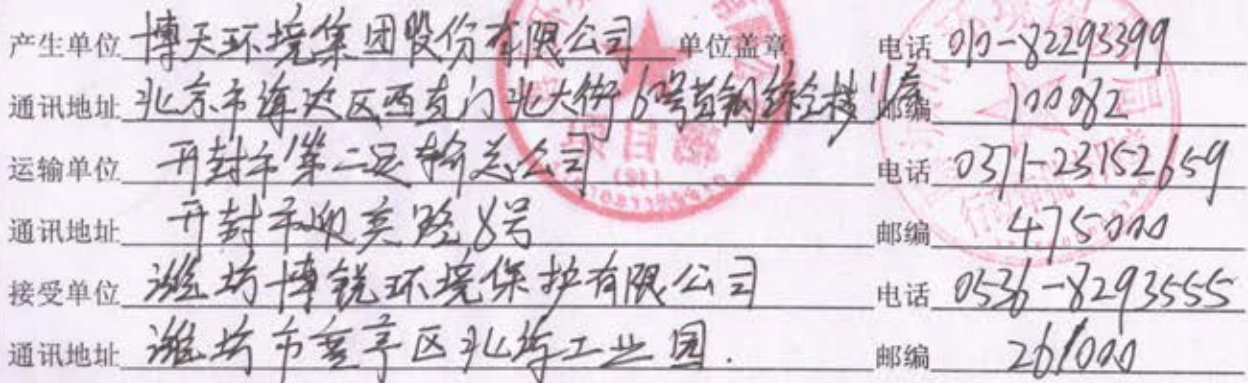 产生单位 博天环境集团股份有限公司 单位盖章 电话 010-82293399
通讯地址 北京市海淀区西直门北大街60号首钢综合楼11层 邮编 100082
运输单位 开封市第二运输总公司 电话 0371-23152659
通讯地址 开封市迎宾路8号 邮编 475000
接受单位 潍坊博锐环境保护有限公司 电话 0536-8293555
通讯地址 潍坊市奎文区北海工业园. 邮编 261000